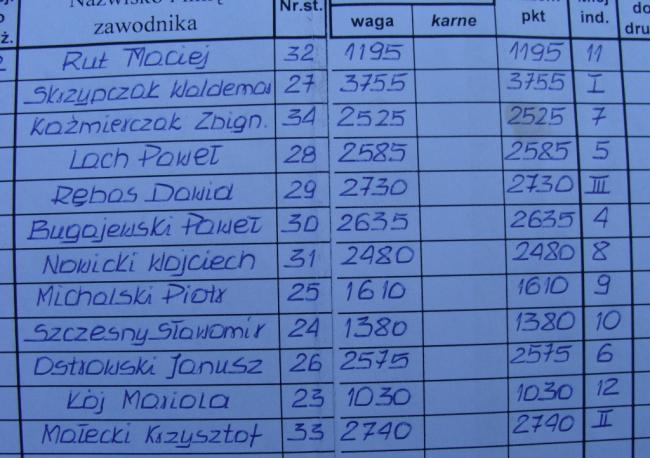 zawodnika Nr.st. waga karne pkt ind.
Rut Maciej 32 1195 1195 11
Skrzypczak Waldemar 27 3755 3755 I
Kaźmierczak Zbign. 34 2525 2525 7
Lach Paweł 28 2585 2585 5
Rębas Dawid 29 2730 2730 III
Bugajewski Paweł 30 2635 2635 4
Nowicki Wojciech 31 2480 2480 8
Michalski Piotr 25 1610 1610 9
Szczesny Sławomir 24 1380 1380 10
Ostrowski Janusz 26 2575 2575 6
Kój Mariola 23 1030 1030 12
Małecki Krzysztof 33 2740 2740 II